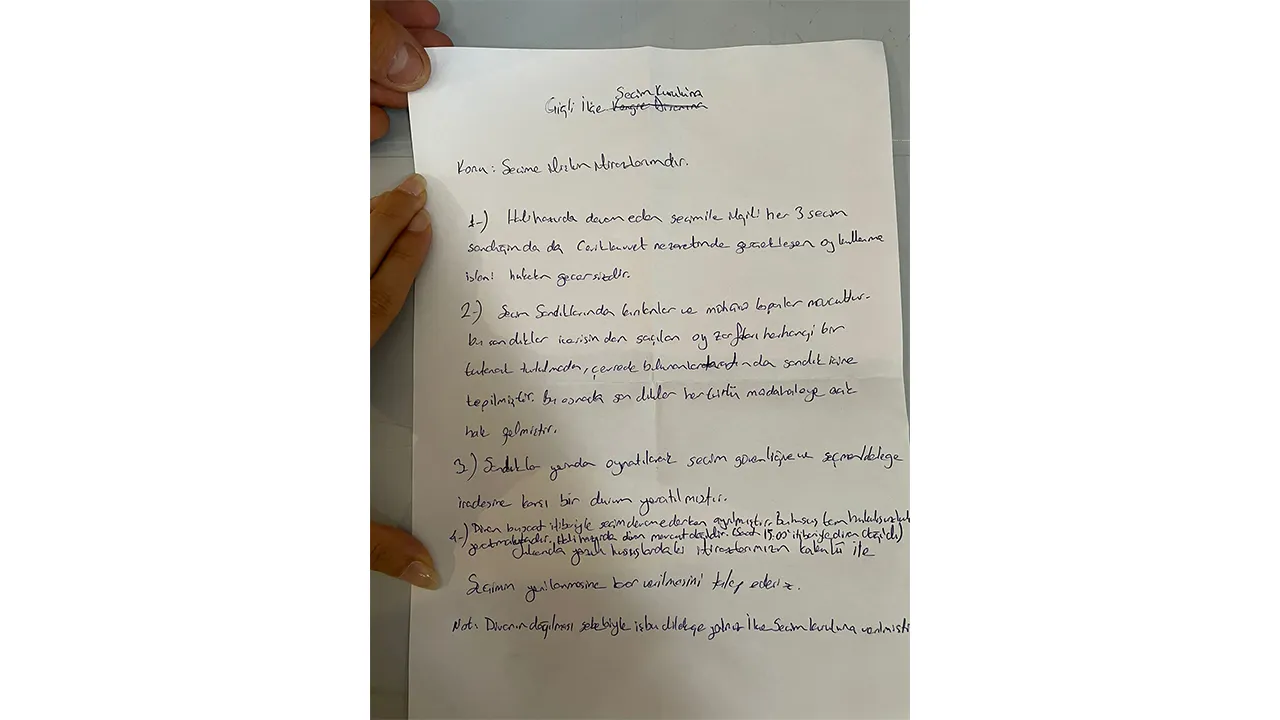 Seçim Kuruluna
Çiğli İlçe Kongre Divanına
Konu: Seçime ilişkin itirazlarımdır.
1-) Hali hazırda devam eden seçim ile ilgili her 3 seçim
sandığında da Çevik kuvvet nezaretinde gerçekleşen oy kullanma
işlemi hukuken geçersizdir.
2-) Seçim Sandıklarında kırılanlar ve mühürü kopanlar mevcuttur.
bu sandıklar içerisinden saçılan oy zarfları herhangi bir
tutanak tutulmadan, çevrede bulunanlar tarafından da sandık içine
tepilmiştir. Bu esnada sandıklar her türlü müdahaleye açık
hale gelmiştir.
3-) Sandıklar yerinden oynatılarak seçim güvenliğine ve seçmen/delege
iradesine karşı bir durum yaratılmıştır.
4-) Divan bu saat itibariyle seçim devam ederken ayrılmıştır. bu husus tam hukuksuzluk
yaratmaktadır. Hali hazırda divan mevcut değildir. (Saat 15.00 itibariyle divan dağıldı)
Yukarıda yazılı hususlardaki itirazlarımızın kabulü ile
Seçimin yenilenmesine karar verilmesini talep ederiz.
Not: Divanın dağılması sebebiyle işbu dilekçe yalnız İlçe Seçim kuruluna verilmişti